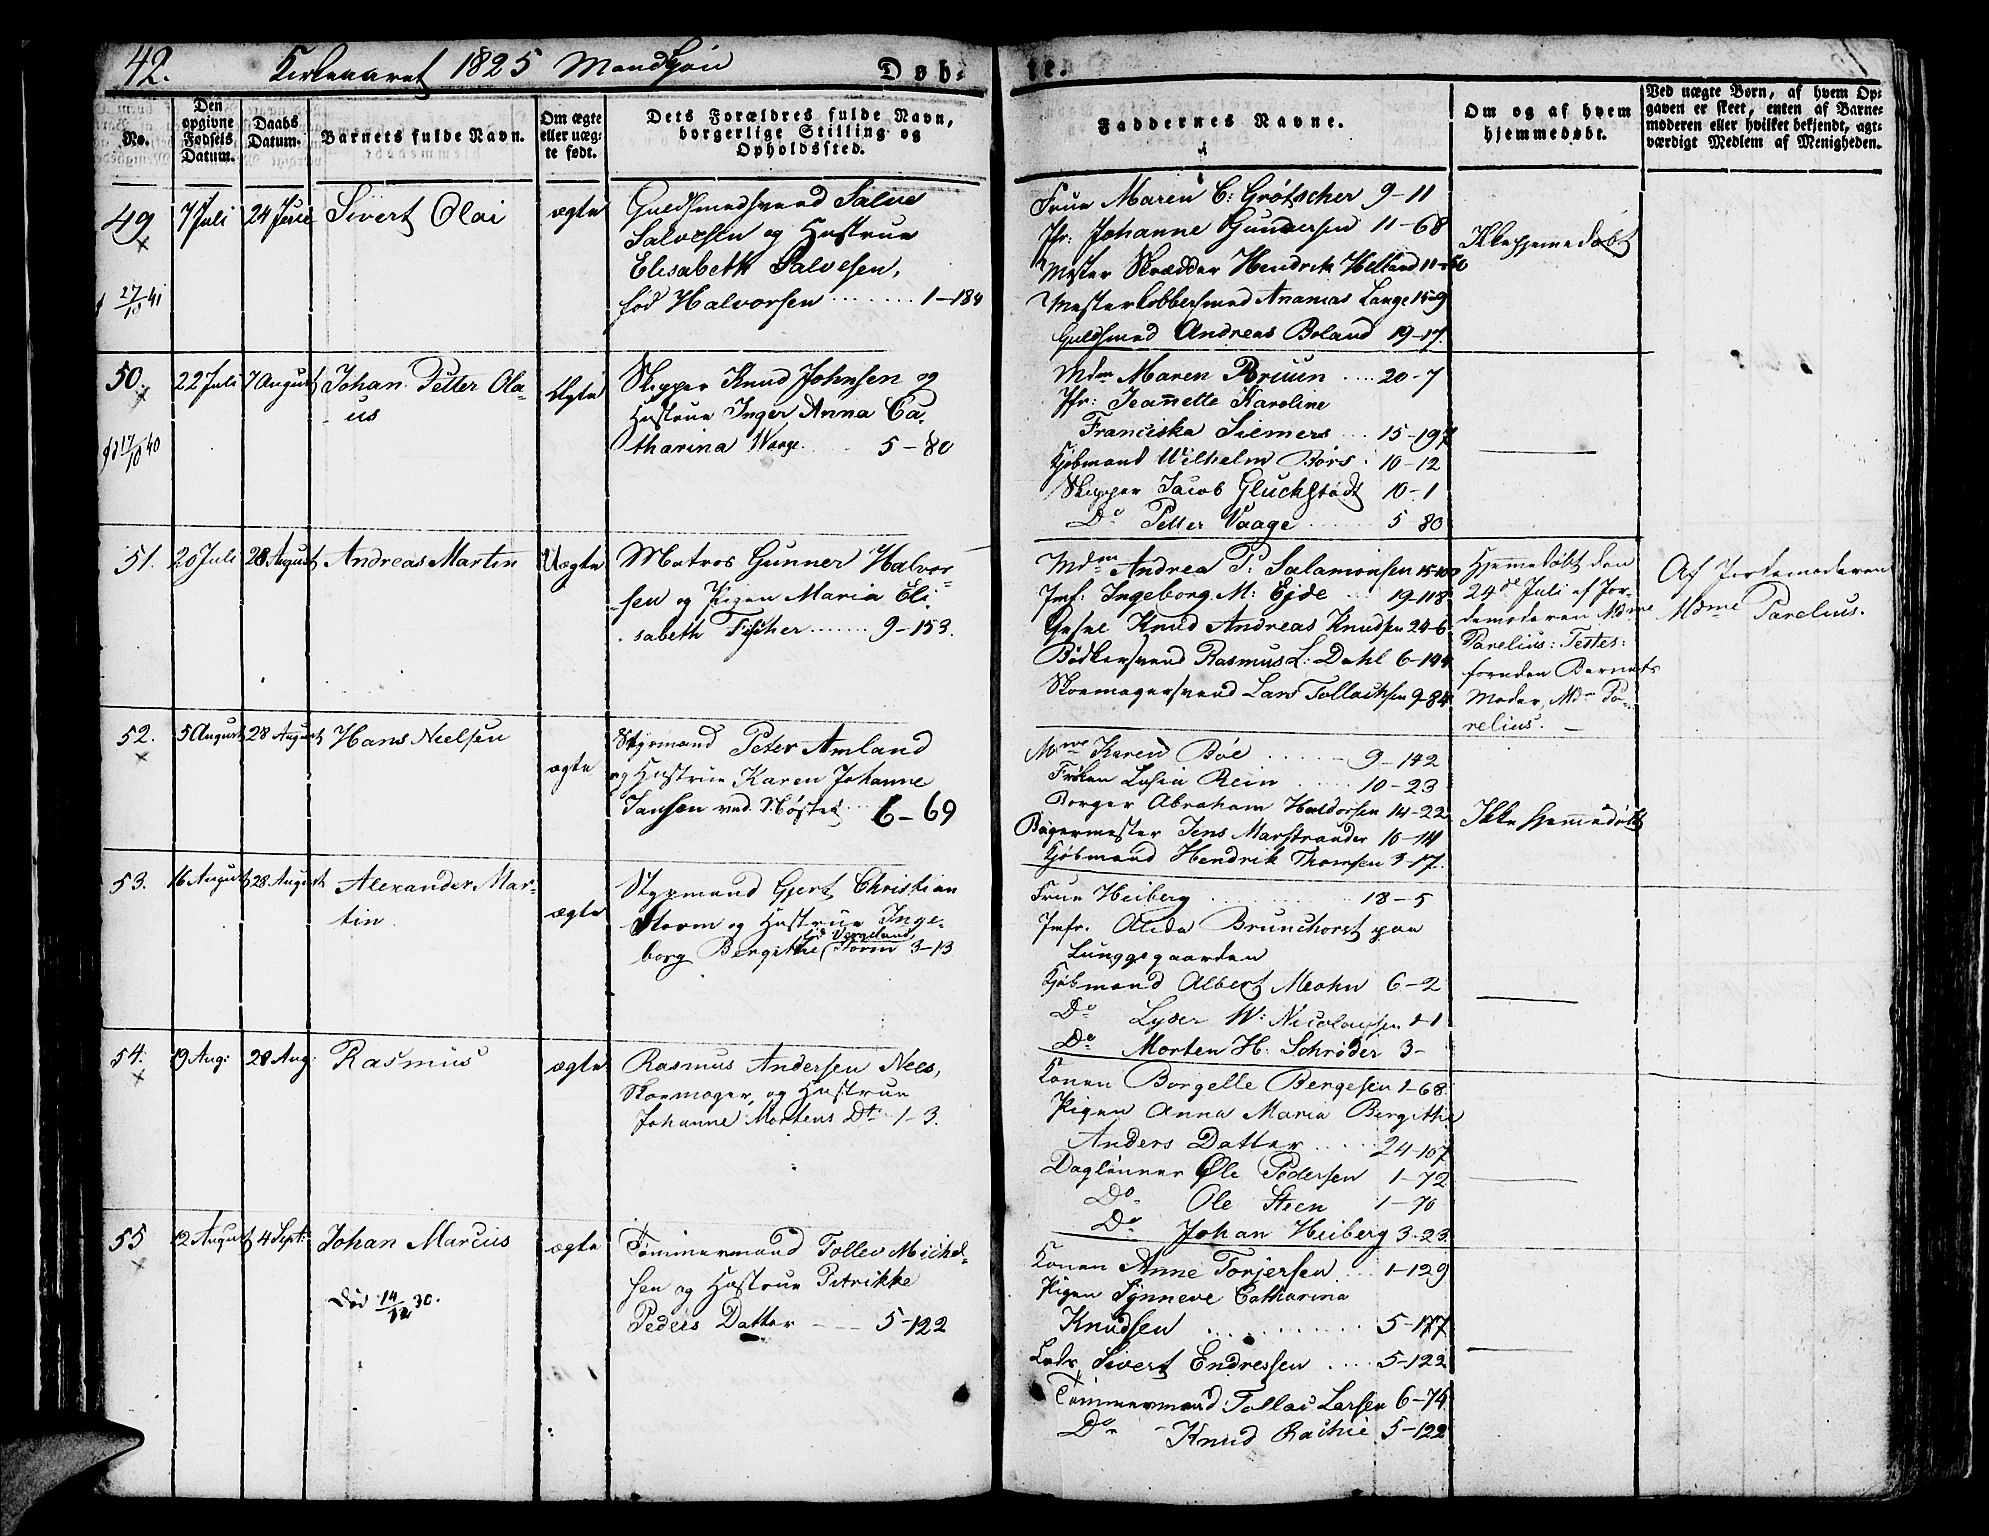 42. Kirkeaaret 1825 Mandkjön Døb- te.
No.
Den opgivne Fødsels Datum.
Daabs Datum.
Barnets fulde Navn.
Om ægte eller uæg- te født.
Dets Forældres fulde Navn, borgerlige Stilling og Opholdssted.
Faddernes Navne.
Om og af hvem hjemmedøbt.
Ved uægte Børn, af hvem Op- gaven er skeet, enten af Barne- moderen eller hvilket bekjendt, agt- værdigt Medlem af Menigheden.
49 7 Juli 24 Julii Sivert Olai ægte
27/10 41
Guldsmedsvend Salve
Salvesen og Hustrue
Elisabeth Salvesen,
fød Halvorsen 1-184
Frue Maren C: Grøtscher 9-11
Jfr: Johanne Gundersen 11-68
Mester Skrædder Hendrik Helland 11-50
Mesterkobbersmed Ananias Lange 15-9
Guldsmed Andreas Boland 19-17.
Ikke hjemmedøbt
50. 22 Juli 7 August Johan Petter Ola-
us
Ægte
17/10 40
Skipper Knud Johnsen og
Hustrue Inger Anna Ca-
tharina Waage 5-80
Mdm Maren Bruun 20-7
Jfr: Jeannette Karoline
Franciska Siemers 15-197
Kjøbmand Wilhelm Børs 10-12
Skipper Jacob Gluckstadt 10-1
Do Petter Vaage 5 80
51. 20 Juli 28 August Andreas Martin Uægte
Matros Gunner Halvor-
sen og Pigen Maria Eli-
sabeth Fischer 9-153.
Mdm Andrea P: Salamonsen 15-100
Jmf: Ingeborg M: Ejde 19-118
Knud Andreas Knudsen 24-6
Bødkersvend Rasmus L: Dahl 6-144
Skoemagersvend Lars Tollachsen 9-84
Hjemmedøbt den
24de Juli af Jor-
demoderen Mdme
Parelius: Testes:
foruden Barnets
Moder, Mdm Pa-
relius.
Af Jordemoderen
Mdme Parelius.
52. 5 August 28 August Hans Nielsen ægte
Styrmand Peter Amland
og Hustrue Karen Johanne
Jansen ved Nøstet 6-69
Mme Karen Bøe 9-142
Frøken Lusia Rein 10-23
Borger Abraham Haldorsen 14-22
Bøgermester Jens Marstrander 10-14
Kjøbmand Hendrik Thomsen 3-17.
Ikke hjemmedøbt
53. 16 August 28 August Alexander Mar-
tin
ægte
Styrmand Gjert Christian
Storm og Hustrue Inge-
borg Bergithe Storm 3-13
Frue Heiberg 18-5
Jmfr. Alida Brunchorst paa
Lunggegaarden
Kjøbmand Albert Meohn 6-2
Do Lyder W: Nicolaysen 1-1
Do Morten H: Schrøder 3-
54. 9 Aug: 28 Aug: Rasmus ægte
Rasmus Andersen Nees,
Skoemager, og Hustrue
Johanne Mortens Dt: 1-3.
Konen Borgelle Bergesen 1-68
Pigen Anna Maria Bergithe
Anders Datter 24-107
Dagleiner Ole Pedersen 1-72
Do Ole Steen 1-70
Do Johan Heiberg 3-23
55 12 August 4 Sept: Johan Marcus ægte
Død 14/12 30.
Tømmermand Tollev Michel-
sen og Hustrue Petrikke
Peders Datter 5-122
Konen Anne Torjersen 1-129
Pigen Synneve Catharina
Knudsen 5-177
Sivert Endressen 5-122
Tømmermand Tollac Larsen 6-74
Do Knud Rachie 5-122